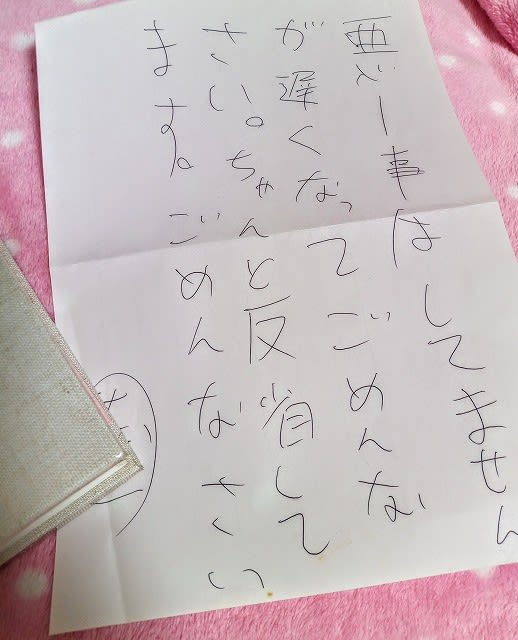 悪い事はしてません
が遅くなってごめんな
さい。ちゃんと反省して
ます。ごめんなさい